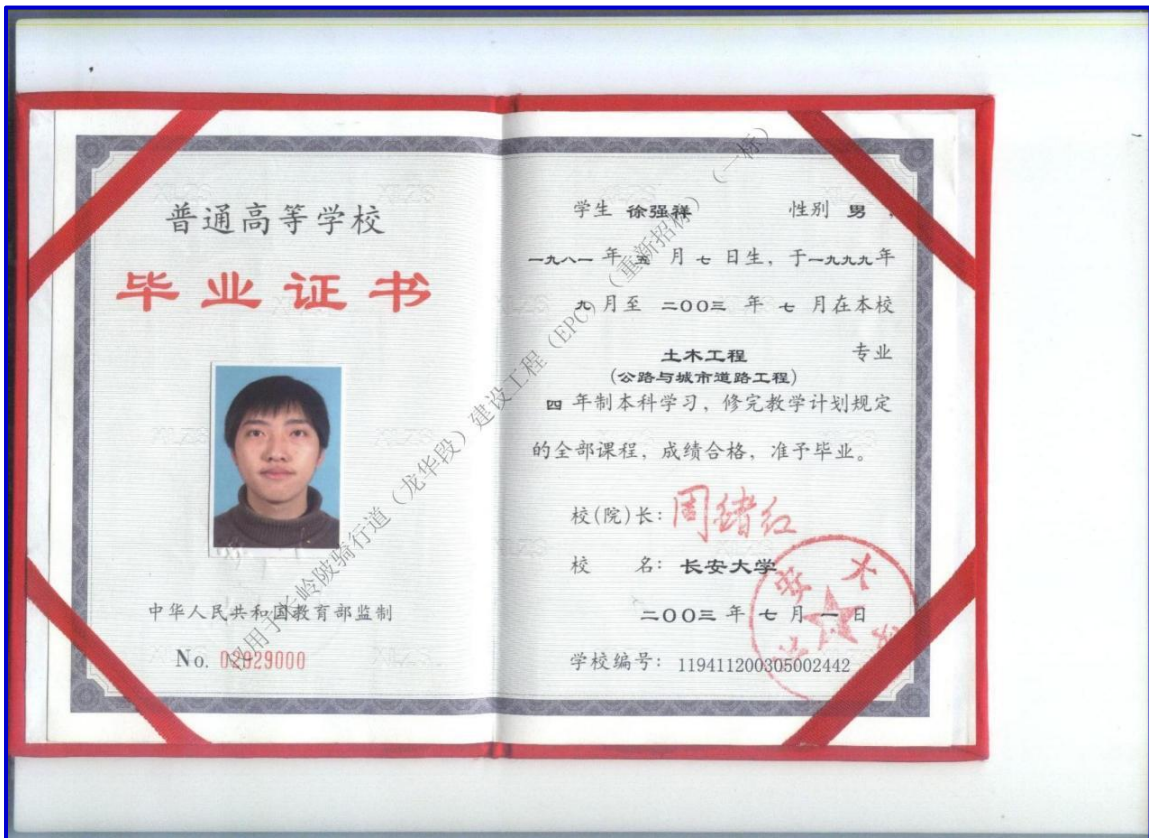 普通高等学校
毕业证书
中华人民共和国教育部监制
No. 02929000
学生 徐强祥 性别 男 ,
一九八一 年 五 月 七 日生, 于一九九九年
九 月至 二〇〇三 年 七 月在本校
土木工程 专业
(公路与城市道路工程)
四 年制本科学习, 修完教学计划规定
的全部课程, 成绩合格, 准予毕业。
校(院)长: 周绪红
校 名: 长安大学
二〇〇三 年 七 月 一 日
学校编号: 119411200305002442
仅用于长岭陂骑行道(龙华段)建设工程(EPC)(重新招标)(一标)